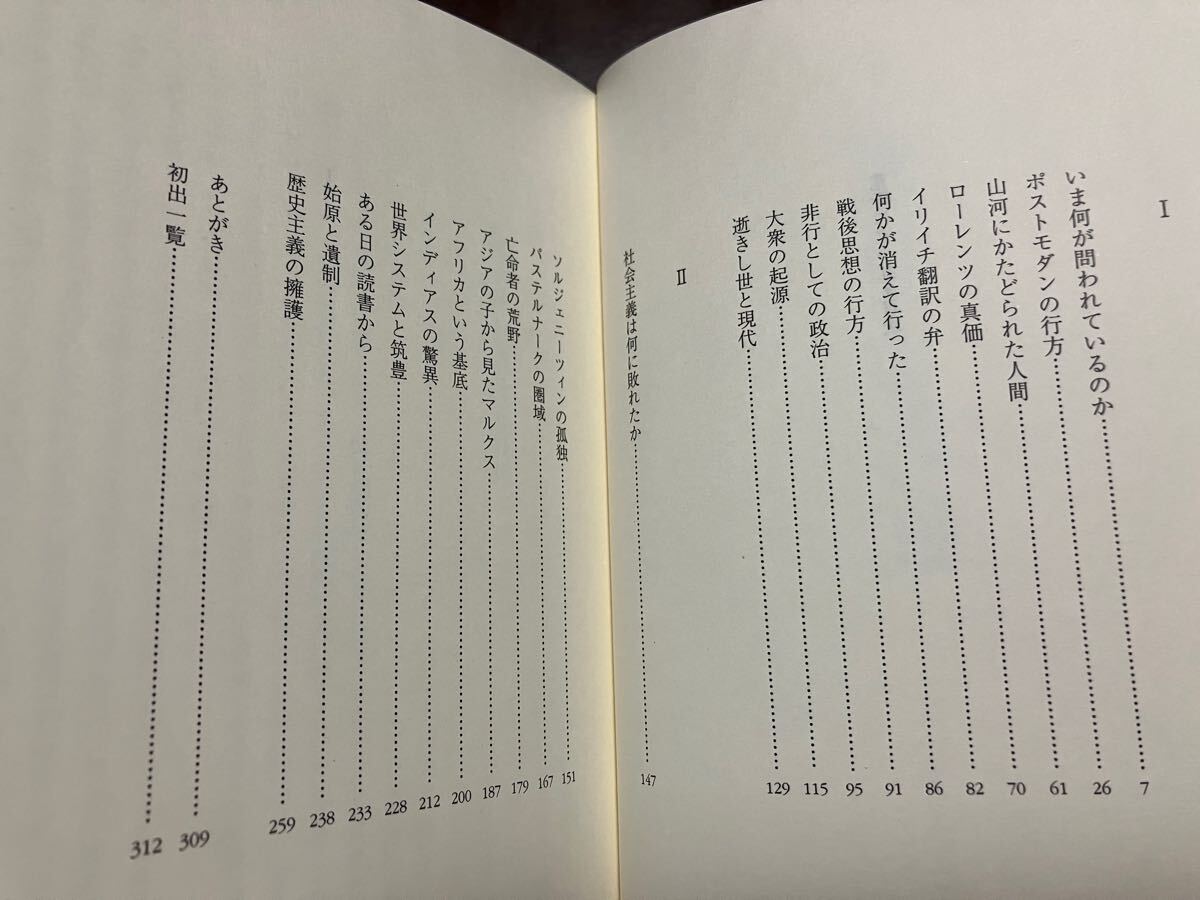 Ⅰ
いま何が問われているのか…………7
ポストモダンの行方…………26
山河にかたどられた人間…………61
ローレンツの真価…………70
イリイチ翻訳の弁…………82
何かが消えて行った…………86
戦後思想の行方…………91
非行としての政治…………95
大衆の起源…………115
逝きし世と現代…………129
Ⅱ
社会主義は何に敗れたか…………147
ソルジェニーツィンの孤独…………151
パステルナークの圏域…………167
亡命者の荒野…………179
アジアの子から見たマルクス…………187
アフリカという基底…………200
インディアスの驚異…………212
世界システムと筑豊…………228
ある日の読書から…………233
始原と遺制…………238
歴史主義の擁護…………259
あとがき…………309
初出一覧…………312